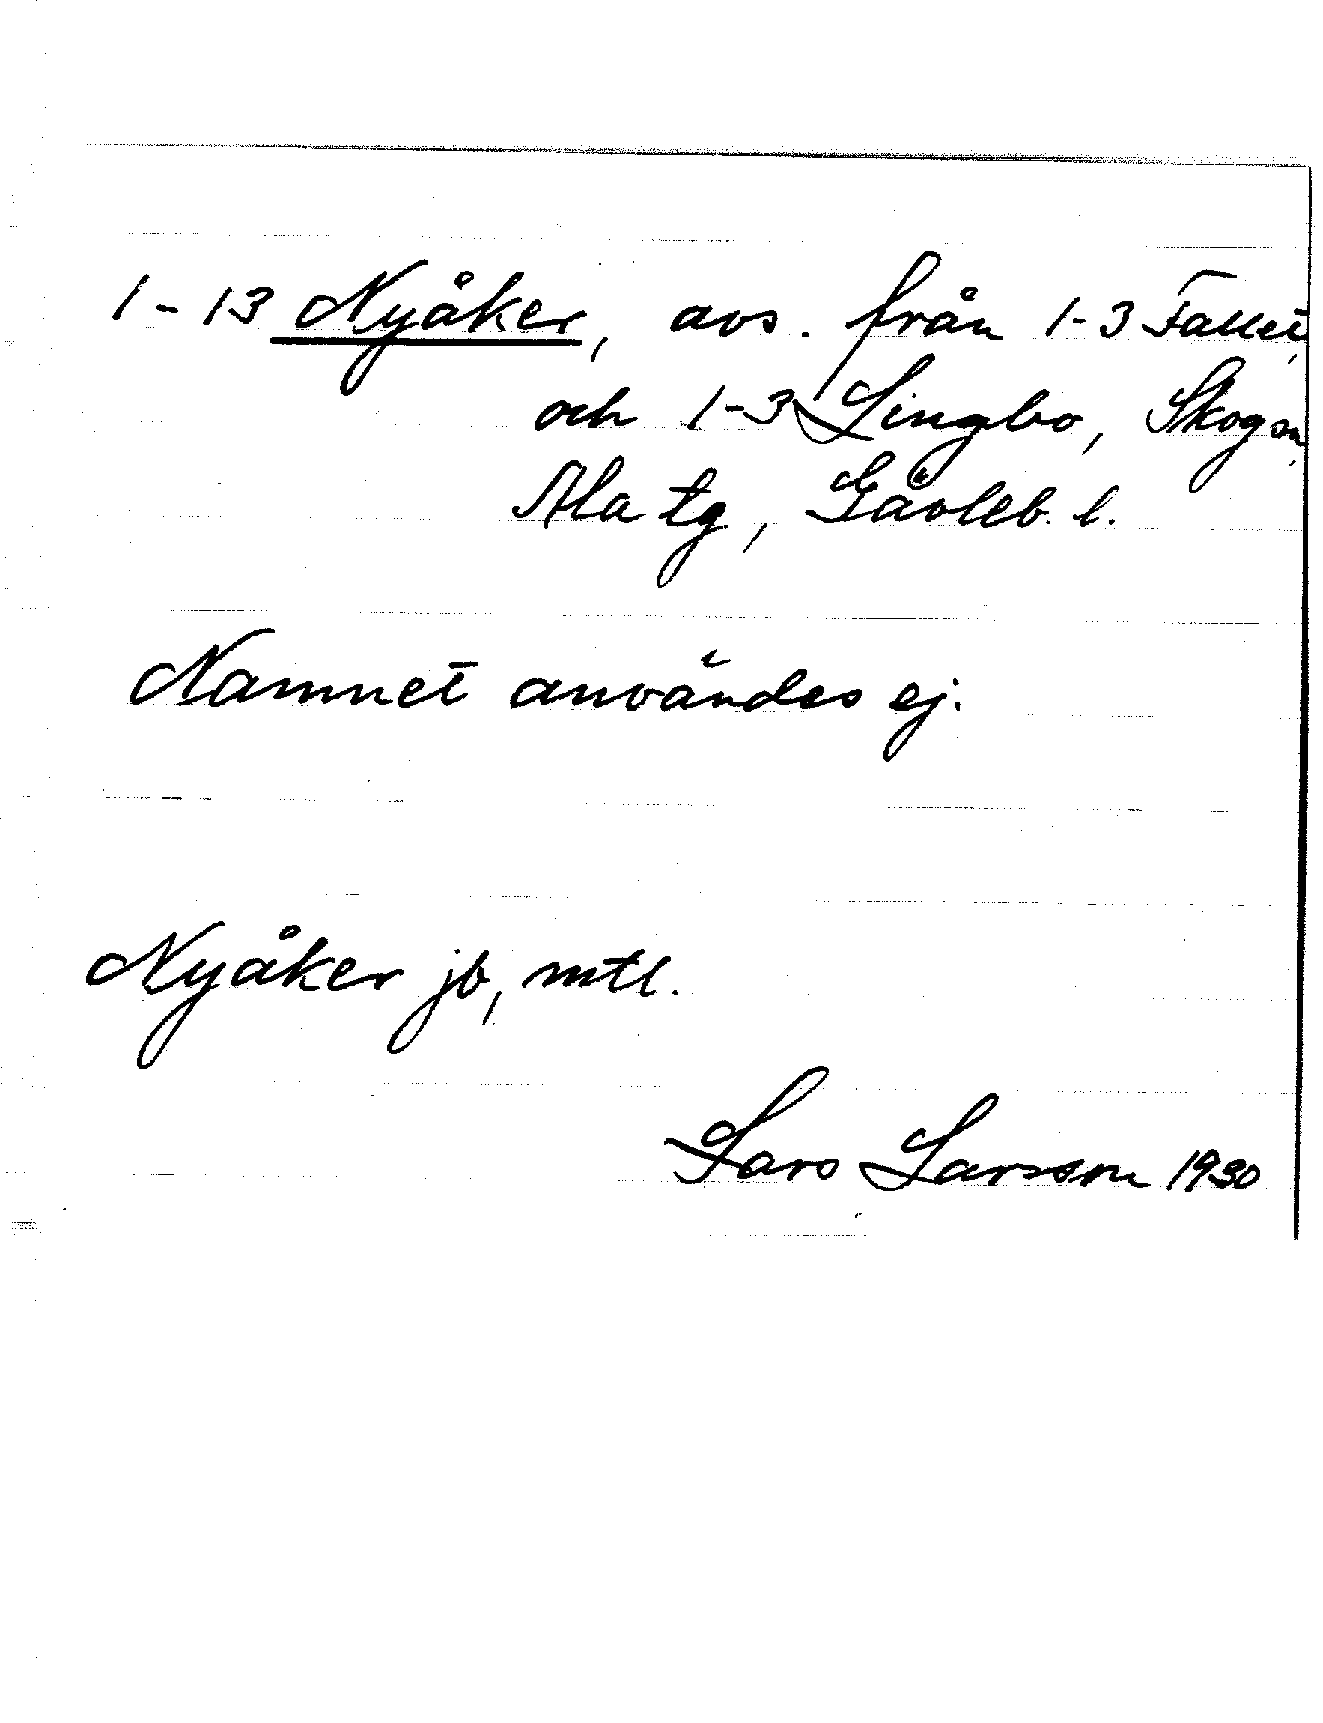 1-13 Nyåker, avs. från 1-3 Fallet,
och 1-3 Lingbo, Skogsn,
Ala tg, Gävleb. l.
Namnet användes ej.
Nyåker jb, mtl.
Lars Larsson 1930